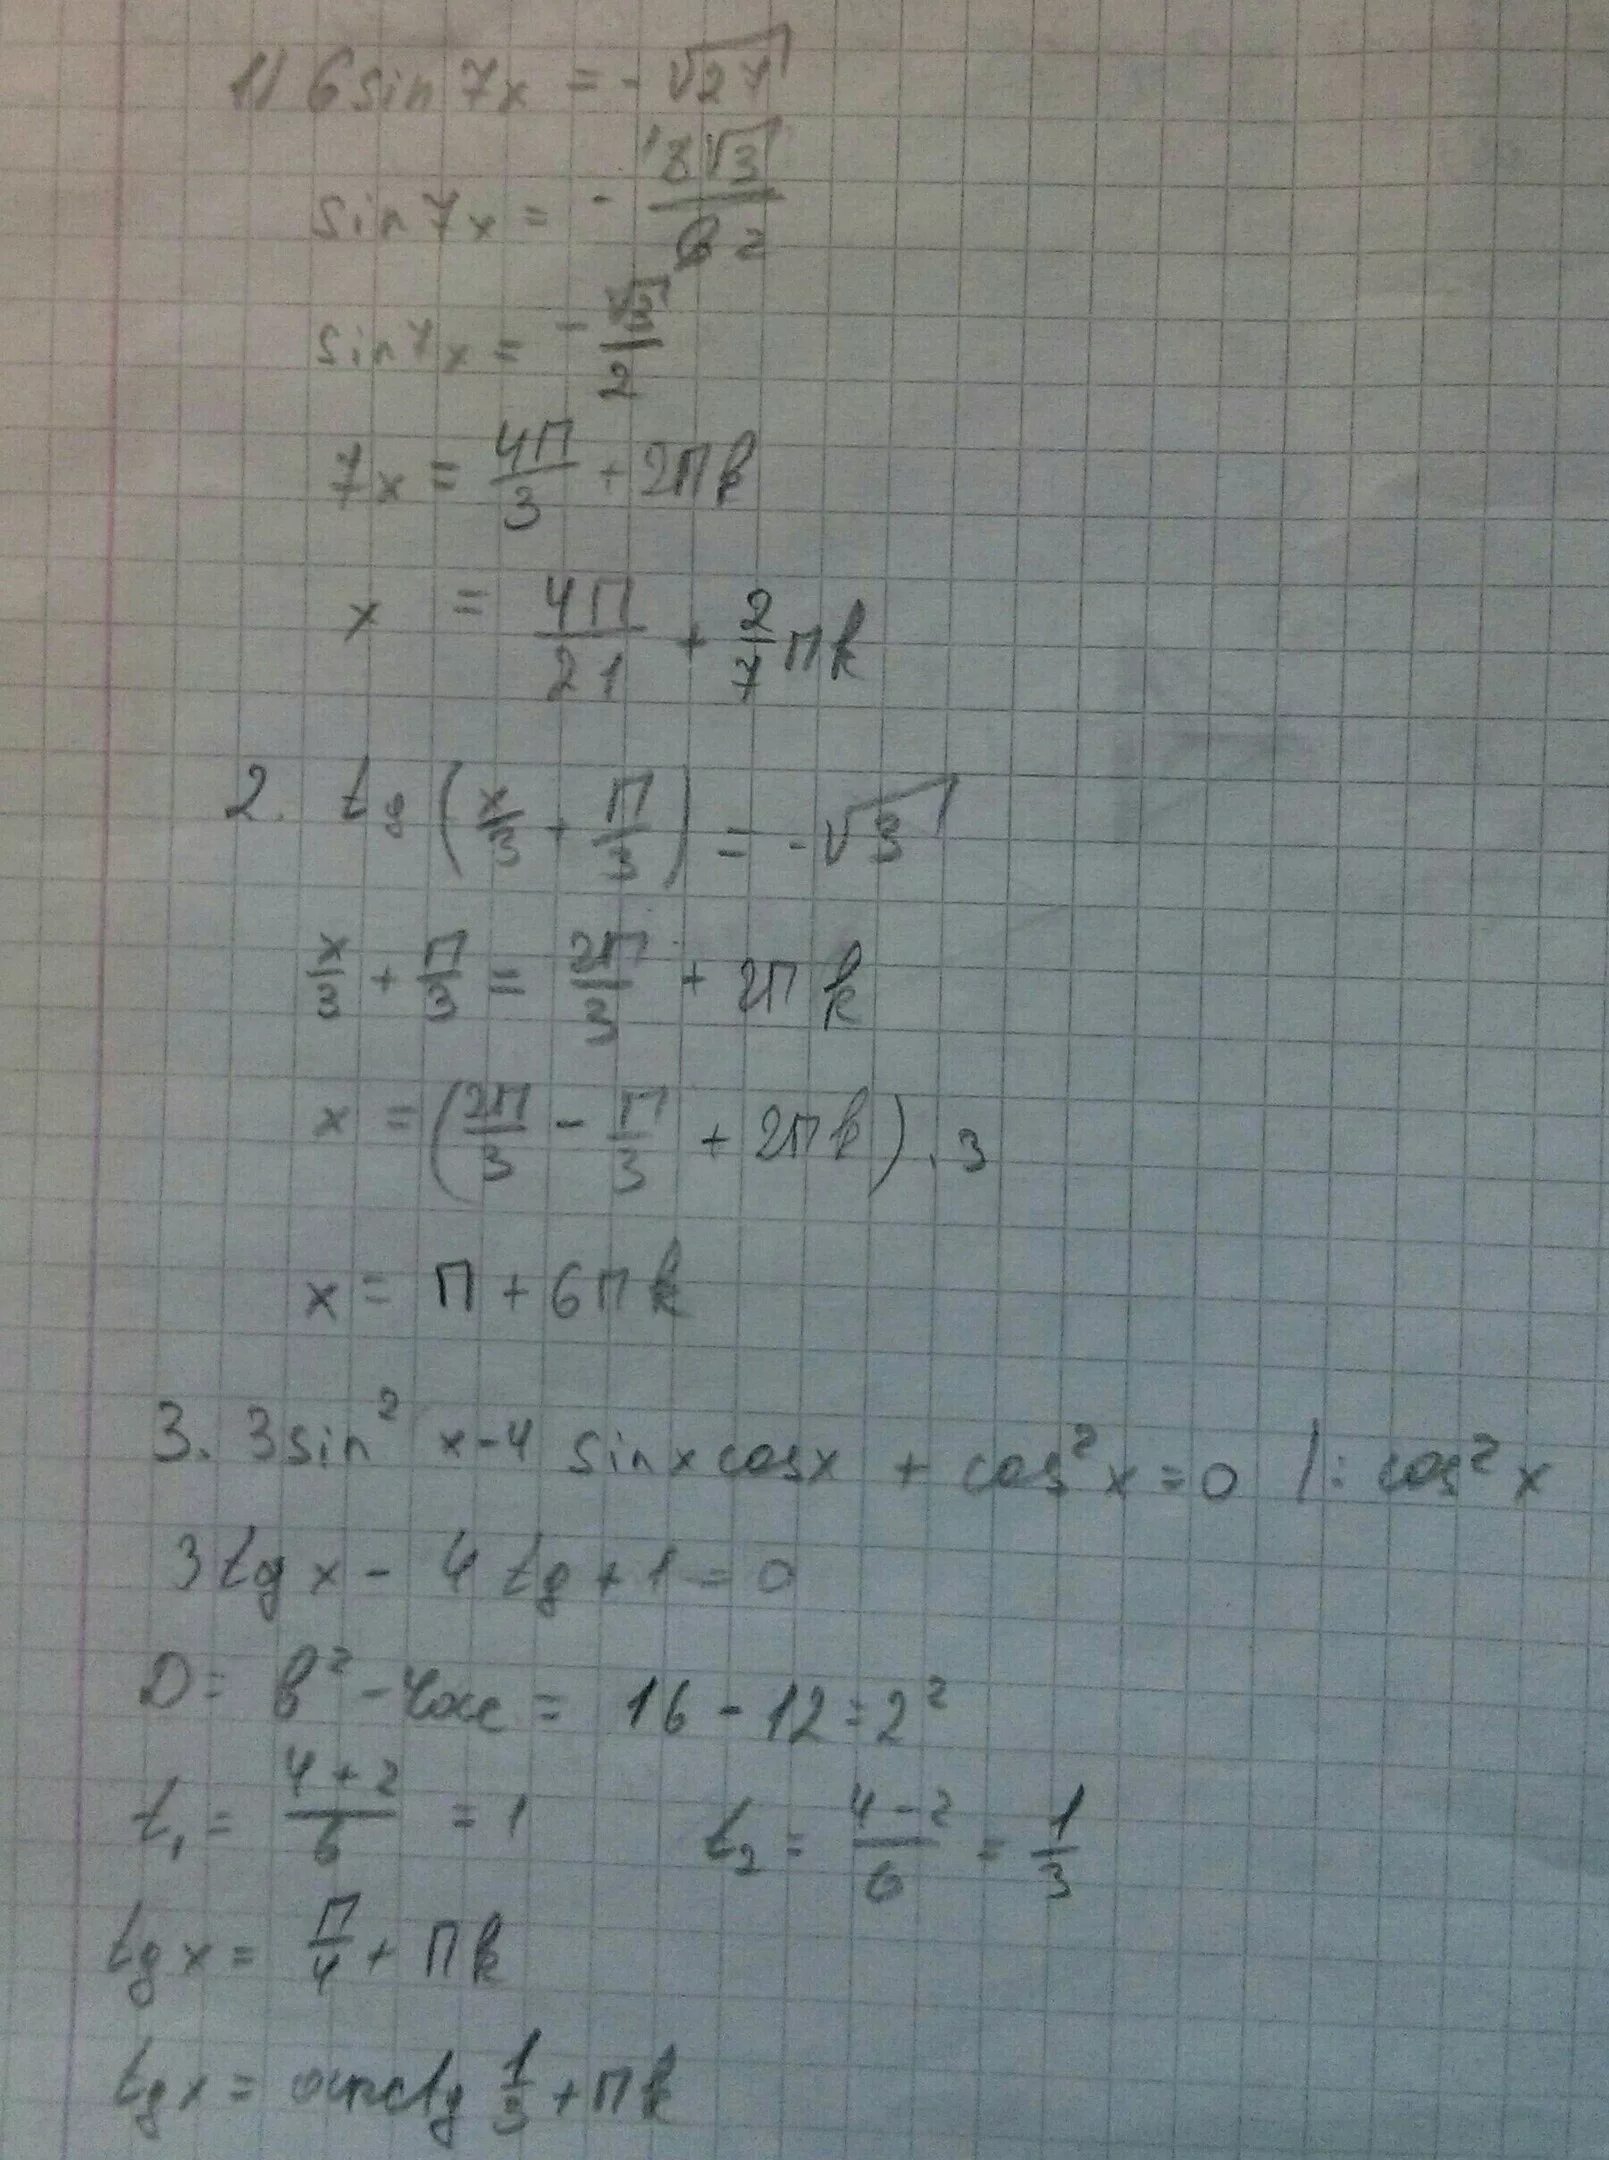 1) 6 sin 7x = - √27
sin 7x = - 3√3 / 6 2
sin 7x = - √3/2
7x = 4П/3 + 2Пk
x = 4П/21 + 2/7 Пk
2. tg (x/3 + П/3) = - √3
x/3 + П/3 = 2П/3 + 2Пk
x = (2П/3 - П/3 + 2Пk) . 3
x = П + 6Пk
3. 3 sin² x - 4 sin x cos x + cos² x = 0 | : cos² x
3 tg x - 4 tg + 1 = 0
D = b² - 4ac = 16 - 12 = 2²
t₁ = 4+2/6 = 1 t₂ = 4-2/6 = 1/3
tg x = П/4 + Пk
tg x = arctg 1/3 + Пk